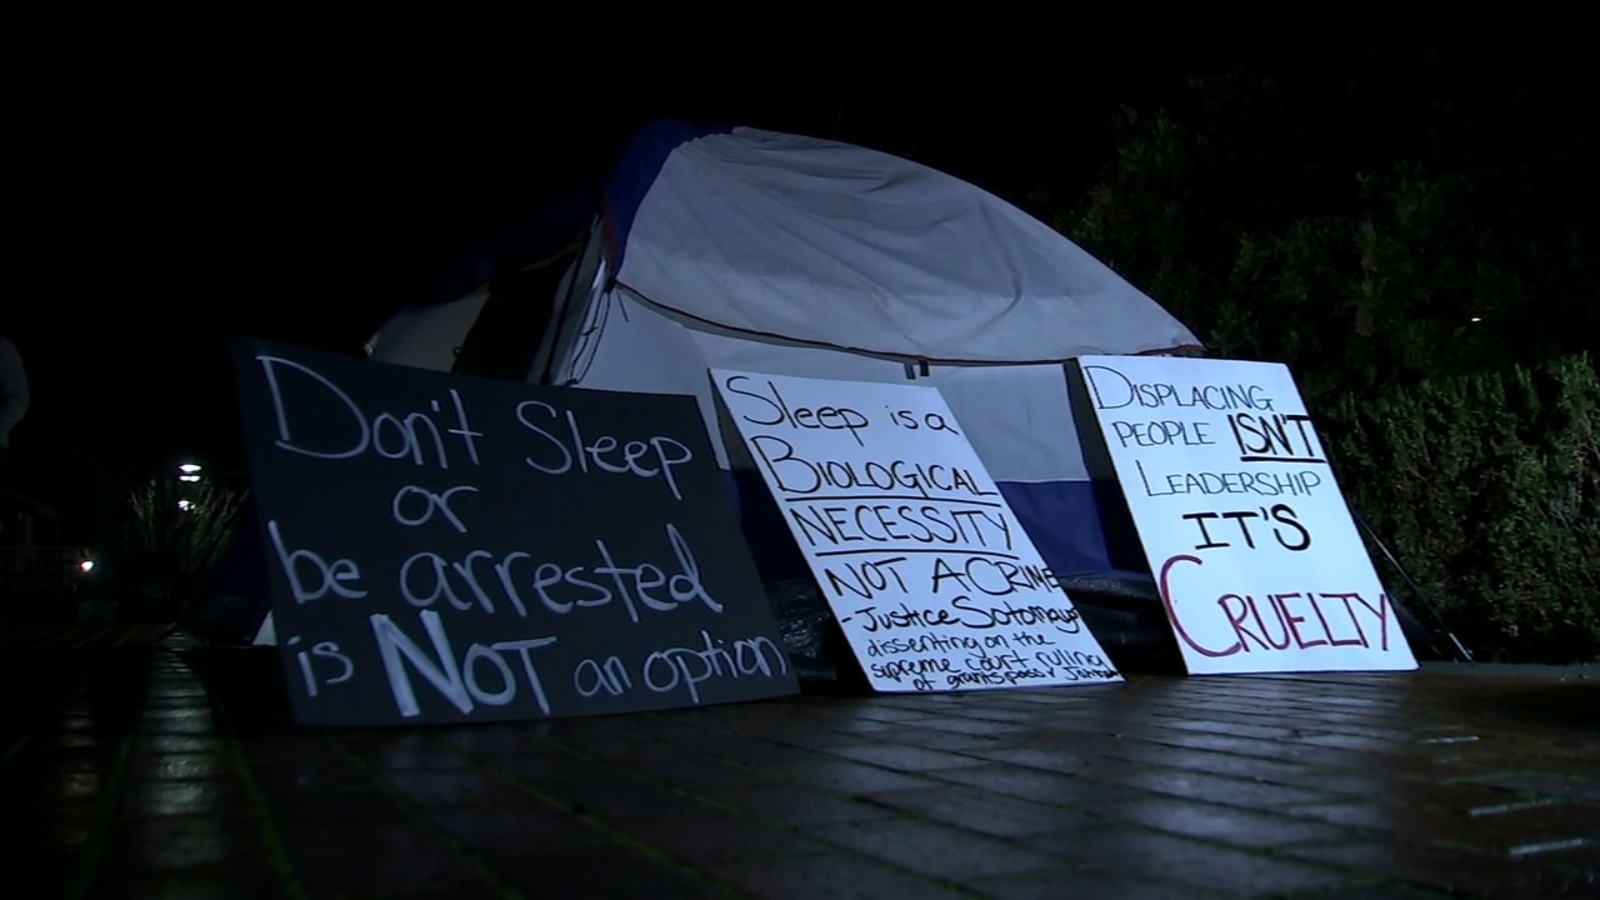 Don't Sleep
or
be arrested
is NOT an option
Sleep is a
BIOLOGICAL
NECESSITY
NOT A CRIME
- Justice Sotomayor
dissenting on the
supreme court ruling
of grants pass v Johnson
DISPLACING
PEOPLE ISN'T
LEADERSHIP
IT'S
CRUELTY